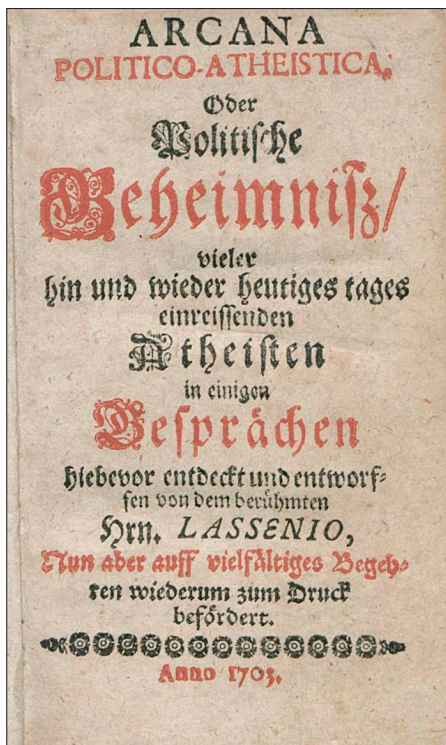 ARCANA
POLITICO-ATHEISTICA,
Oder
Politiſche
Geheimniſz/
vieler
hin und wieder heutiges tages
einreiſſenden
Atheiſten
in einigen
Geſprächen
hiebevor entdeckt und entworf-
fen von dem berühmten
Hrn. LASSENIO,
Nun aber auff vielfältiges Begeh-
ren wiederum zum Druck
befördert.
Anno 1703.